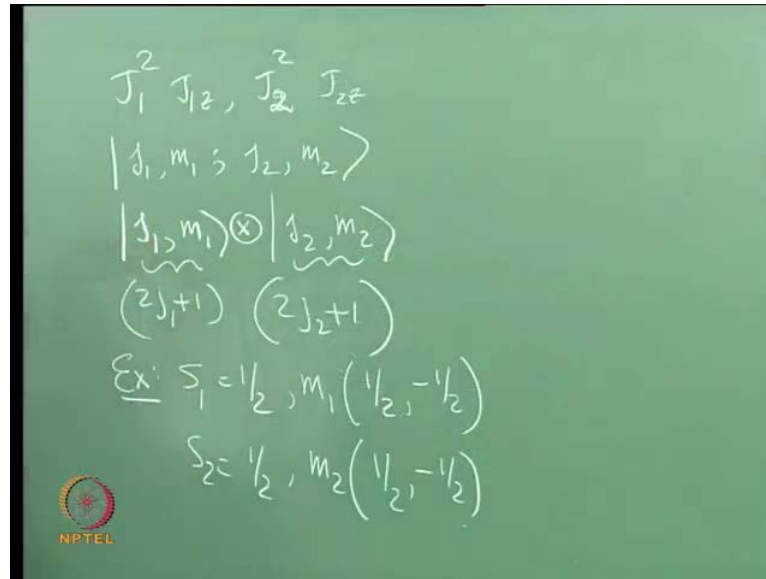 J₁² J₁z, J₂² J₂z
|j₁, m₁ ; j₂, m₂⟩
|j₁, m₁⟩ ⊗ |j₂, m₂⟩
(2j₁+1) (2j₂+1)
Ex: S₁ = 1/2, m₁(1/2, -1/2)
S₂ = 1/2, m₂(1/2, -1/2)
NPTEL